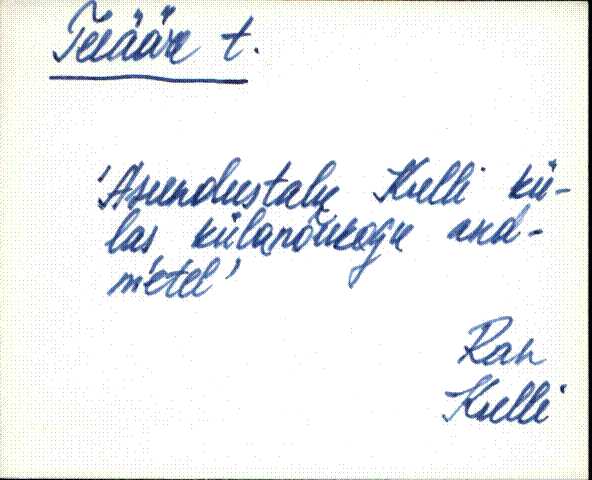 Teeääre t.
'Asundustalu Kulli kü-
las külanõukogu and-
metel'
Ran
Kulli